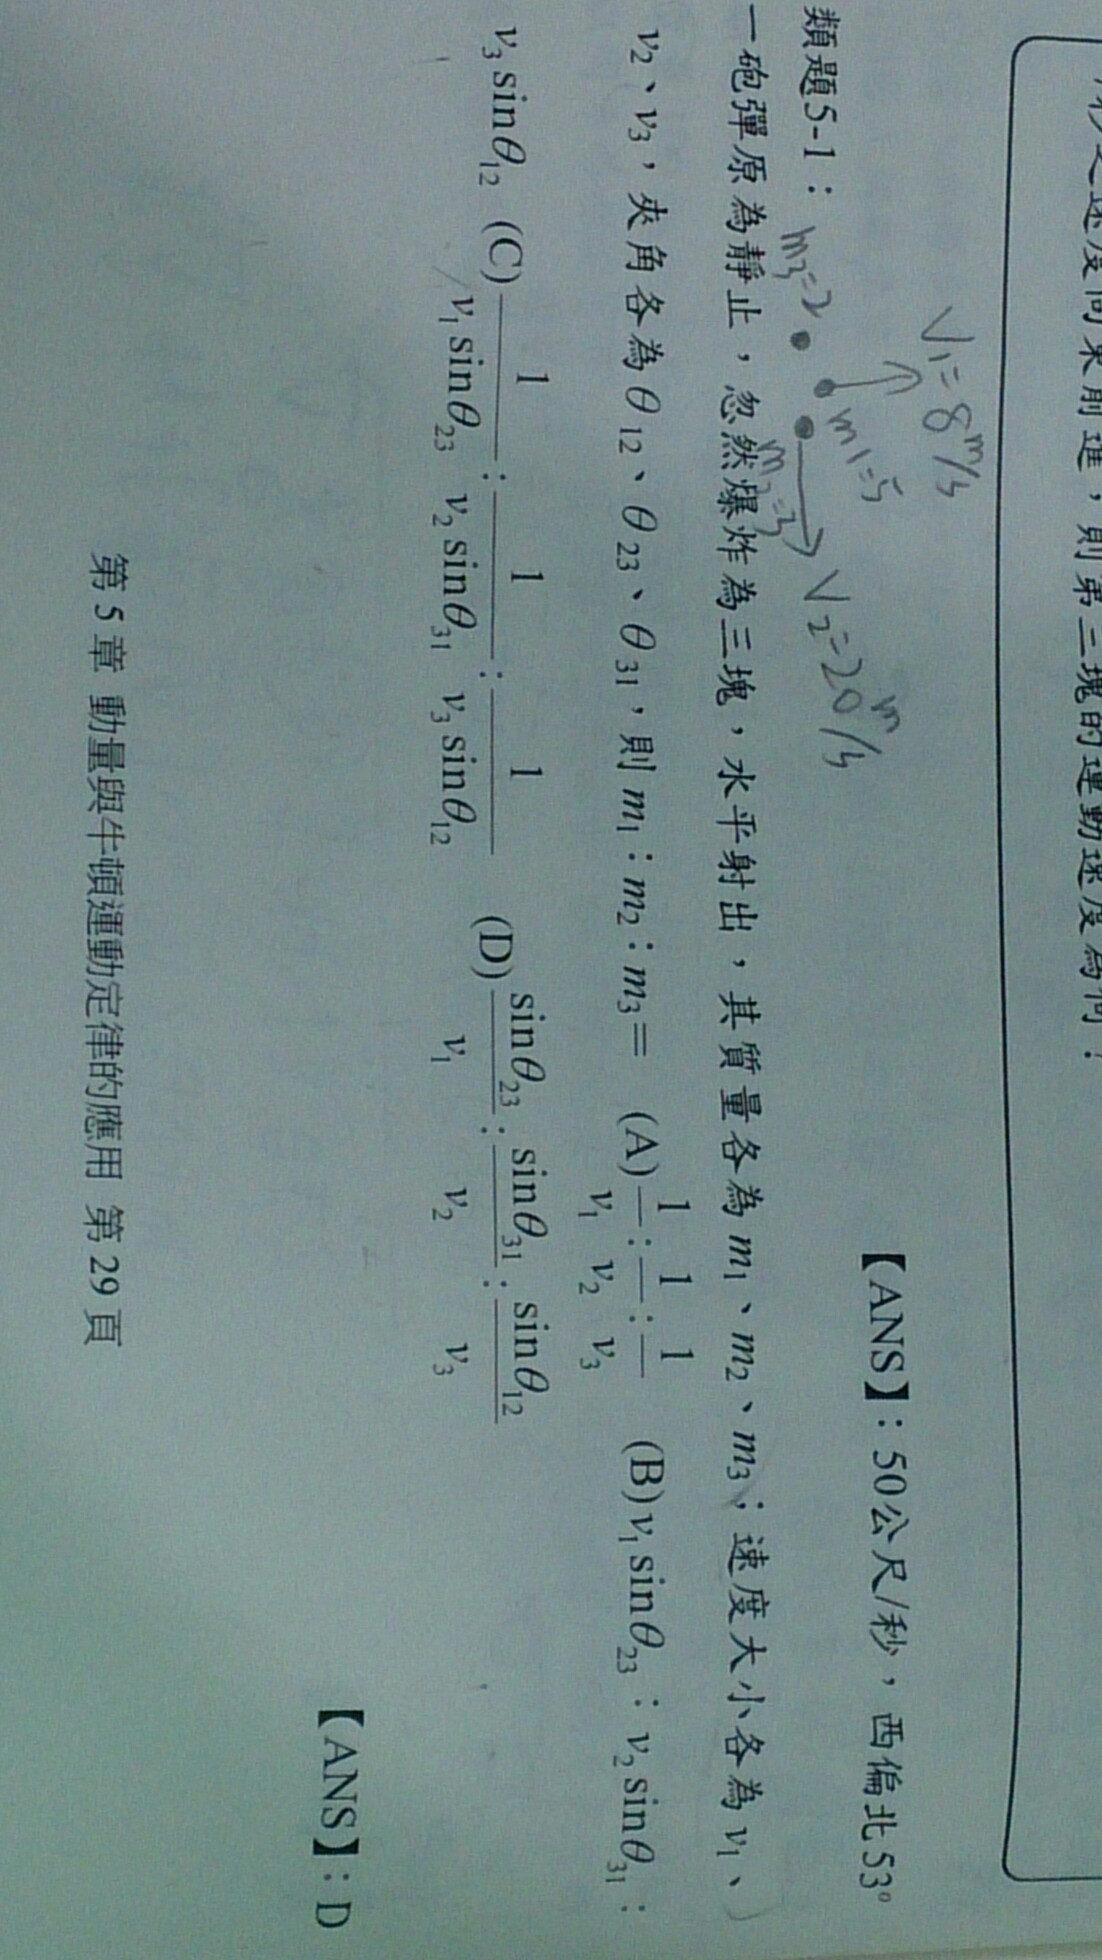 秒之速度向東前進，則第三塊的運動速度為何？
V₁=8m/s
m₁=5
m₃=2
m₂=3
V₂=20m/s
【ANS】：50公尺/秒，西偏北53°
類題5-1：
一砲彈原為靜止，忽然爆炸為三塊，水平射出，其質量各為m₁、m₂、m₃；速度大小各為v₁、
v₂、v₃，夾角各為θ₁₂、θ₂₃、θ₃₁，則m₁：m₂：m₃＝ (A) 1/v₁：1/v₂：1/v₃ (B) v₁sinθ₂₃：v₂sinθ₃₁：
v₃sinθ₁₂ (C) 1/(v₁sinθ₂₃)：1/(v₂sinθ₃₁)：1/(v₃sinθ₁₂) (D) sinθ₂₃/v₁：sinθ₃₁/v₂：sinθ₁₂/v₃
【ANS】：D
第 5 章 動量與牛頓運動定律的應用 第 29 頁